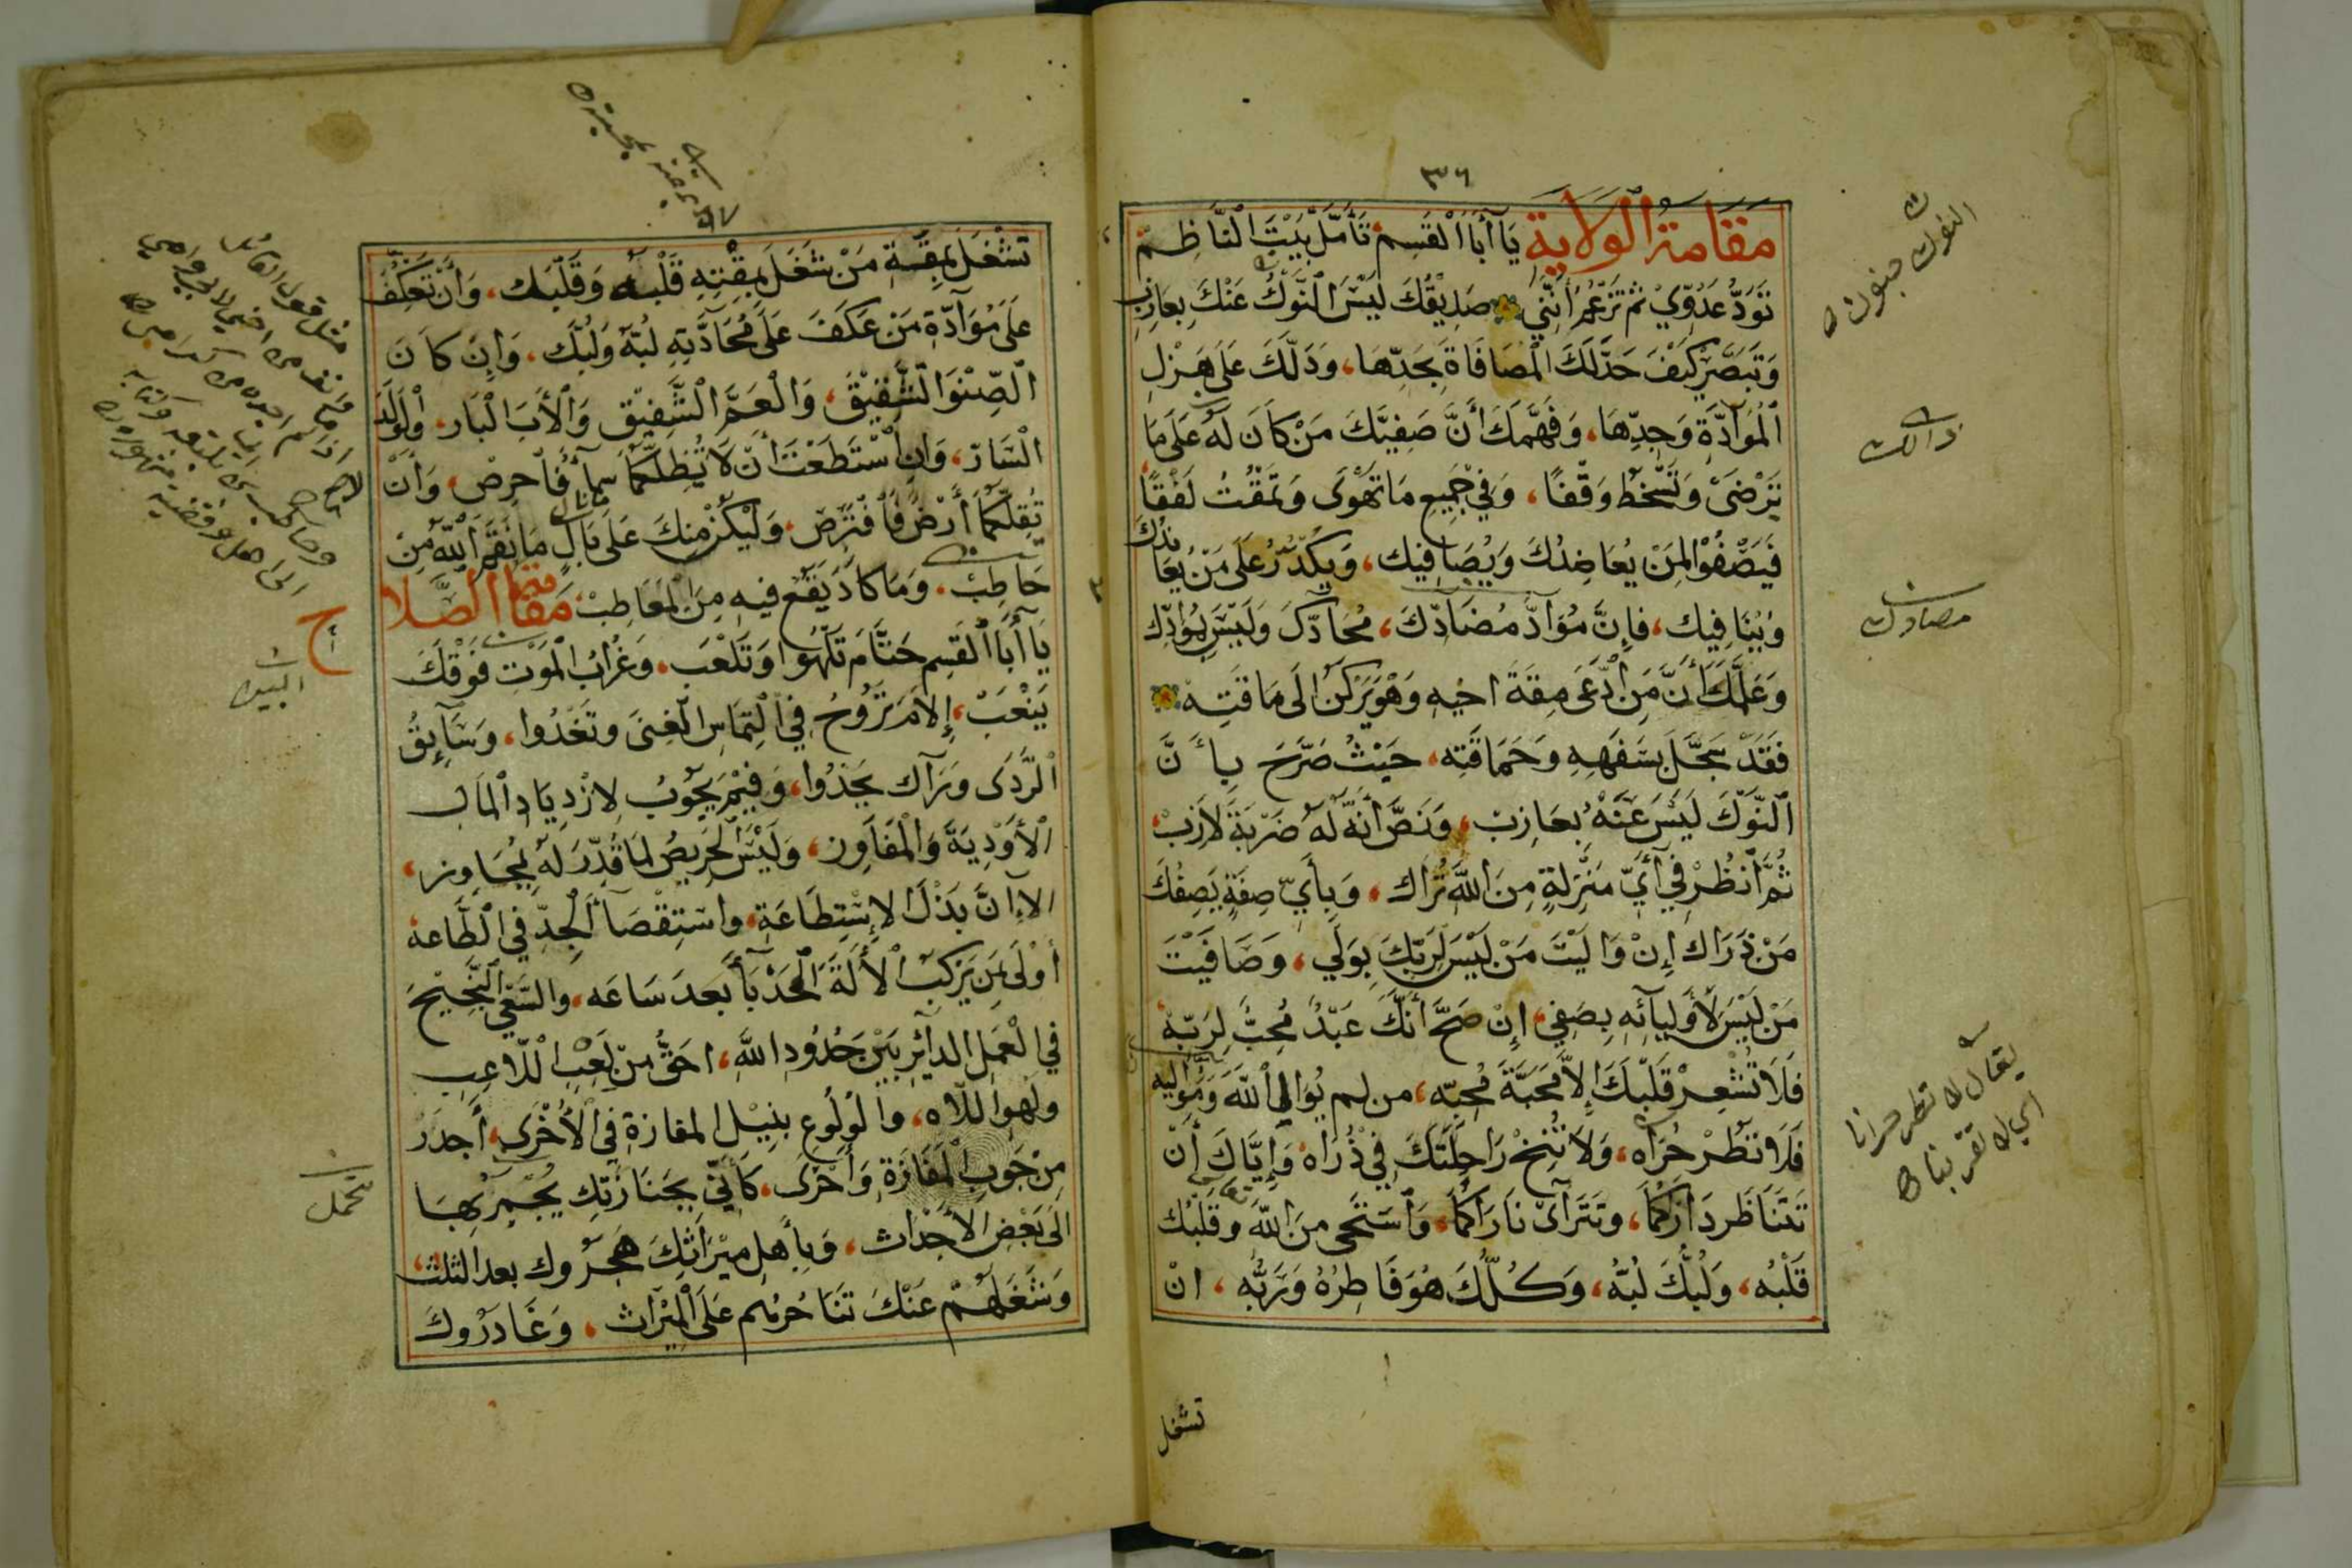 ٣٦
مَقَامَةُ الوِلَايَةِ يَا أَبَا الْقَسِم، تَأَمَّلْ بَيْتَ النَّاظِم
تَوَدُّ عَدُوِّي ثُمَّ تَزْعُمُ أَنَّنِي صَدِيقُكَ لَيْسَ النَّوْكُ عَنْكَ بِعَازِب
وَتَبَصَّرْ كَيْفَ حَدَّ لَكَ الْمُصَافَاةَ بِحَدِّهَا، وَدَلَّكَ عَلَى هَزْلِ
الْمُوَادَّةِ وَجِدِّهَا، وَفَهَّمَكَ أَنَّ صَفِيَّكَ مَنْ كَانَ لَهُ عَلَى مَا
تَرْضَى وَتَسْخَطُ وَقْفًا، وَفِي جَمِيعِ مَا تَهْوَى وَتَمْقُتُ لَفْقًا
فَيَصْفُوْ لِمَنْ يُعَاضِدُكَ وَيُصَافِيك، وَيَكْدُرُ عَلَى مَنْ يُعَانِدُكَ
وَيُنَافِيك، فَإِنَّ مُوَادَّ مُضَادِّكَ، مُحَادُّكَ وَلَيْسَ بِمُوَادِّك
وَعَلَّمَكَ أَنَّ مَنِ ادَّعَى مِقَةَ اخيهِ وَهْوَ يَرْكَنُ الَى مَاقِتِه
فَقَدْ سَجَّلَ بِسَفَهِهِ وَحَمَاقَتِه، حَيْثُ صَرَّحَ بِأَنَّ
النَّوْكَ لَيْسَ عَنْهُ بِعَازِبْ، وَنَصَّ أَنَّهُ لَهُ ضَرْبَةُ لَازِبْ،
ثُمَّ انْظُرْ فِي أَيِّ مَنْزِلَةٍ مِنَ اللَّهِ تُرَاك، وَبِأَيِّ صِفَةٍ يَصِفُكَ
مَنْ ذَرَاك إِنْ وَالَيْتَ مَنْ لَيْسَ لِرَبِّكَ بِوَلِي، وَصَافَيْتَ
مَنْ لَيْسَ لِأَوْلِيَائِهِ بِصَفِي، إِنْ صَحَّ أَنَّكَ عَبْدٌ مُحِبٌّ لِرَبِّهْ
فَلَا تُشْعِرْ قَلْبَكَ إِلَّا مَحَبَّةَ مُحِبِّه، من لم يُوَالِ اللَّهَ وَمُوَالِيه
فَلَا تَطُرْ حَرَاه، وَلَا تُنِخْ رَاحِلَتَكَ فِي ذُرَاهْ وَإِيَّاكَ أَنْ
تَتَنَاظَر دَارَاكُمَا، وَتَتَرَاءَى نَارَاكُمَا، وَاسْتَحْيِ مِنَ اللَّهِ وَقَلْبُك
قَلْبُه، وَلُبُّكَ لُبُّه، وَكُلُّكَ هُوَ فَاطِرُهُ وَرَبُّه، انْ
تشغل
ذالك
مضادك
يقال لا تطر حرانا
اي لا تقربنا
تَشْغَلَ بِمِقَةِ مَنْ شَغَلَ بِمِقْتِهِ قَلْبَهُ وَقَلْبَك، وَأَنْ تَعْكِفَ
عَلَى مُوَادَّةِ مَنْ عَكَفَ عَلَى مُحَادَّتِهِ لُبَّهُ وَلُبَّك، وَإِن كَانَ
الصِّنْوَ الشَّقِيقَ، وَالْعَمَّ الشَّفِيق وَالْأَبَ الْبَار، وَالْوَلَدَ
السَّارّ، وَإِنِ اسْتَطَعْتَ أَنْ لَا تُظِلَّكُمَا سَمَآءٌ فَاحْرِصْ، وَأَنْ
تُقِلَّكُمَا أَرْضٌ فَافْتَرِصْ، وَلْيَكُنْ مِنكَ عَلَى بَالٍ مَا نَقَمَ اللَّهُ مِنْ
حَاطِبْ، وَمَا كَادَ يَقَعُ فِيهِ مِنَ الْمَعَاطِبْ، مَقَامَة الصَّلَاح
يَا أَبَا الْقَسِمِ حَتَّامَ تَلْهُوا وَتَلْعَب، وَغُرَابُ الْمَوْتِ فَوْقَكَ
يَنْعَبْ، إِلَامَ تَرُوحُ فِي الْتِمَاسِ الْغِنَى وَتَغْدُوا، وَسَائِقُ
الرَّدَى وَرَآك يَحْدُوا، وَفِيمَ يَجُوبُ لِازْدِيَادِ الْمَال
الْأَوْدِيَةَ وَالْمَفَاوِز، وَلَيْسَ الْحَرِيصُ لِمَا قُدِّرَ لَهُ بِمُجَاوِز،
الا إِنَّ بَذْلَ الْإِسْتِطَاعَةِ، وَاسْتِقْصَآ الْجِدِّ فِي الطَّاعة
أَوْلَى بِمَنْ يَرْكَبُ الْأَلَةَ الْحَدْبَآ بَعدَ سَاعَه، وَالسَّعْيَ النَّجِيحَ
فِي الْعَمَلِ الدائِرِ بَيْنَ حُدُودِ اللَّهِ، احَقُّ مِنْ لَعِبِ اللَّاعِب
ولَهْوِ اللَّاه، وَالْوُلُوعَ بِنَيْلِ المفازةِ فِي الْأُخْرَى، أَجدَرُ
مِنْ جَوبِ الْمَفَازَةِ وَأَحْرَى، كَأَنِّي بِجَنَازَتِك يُجْمِزُ بِهَا
الَى بَعْضِ الْأَجْدَاث، وَبِأَهلِ مِيْرَاثِكَ هَجَرُوك بعد الثلث،
وَشَغَلَهُمْ عَنْكَ تَنَاحُرهُم عَلَى الْمِيْرَاث، وَغَادَرُوكَ